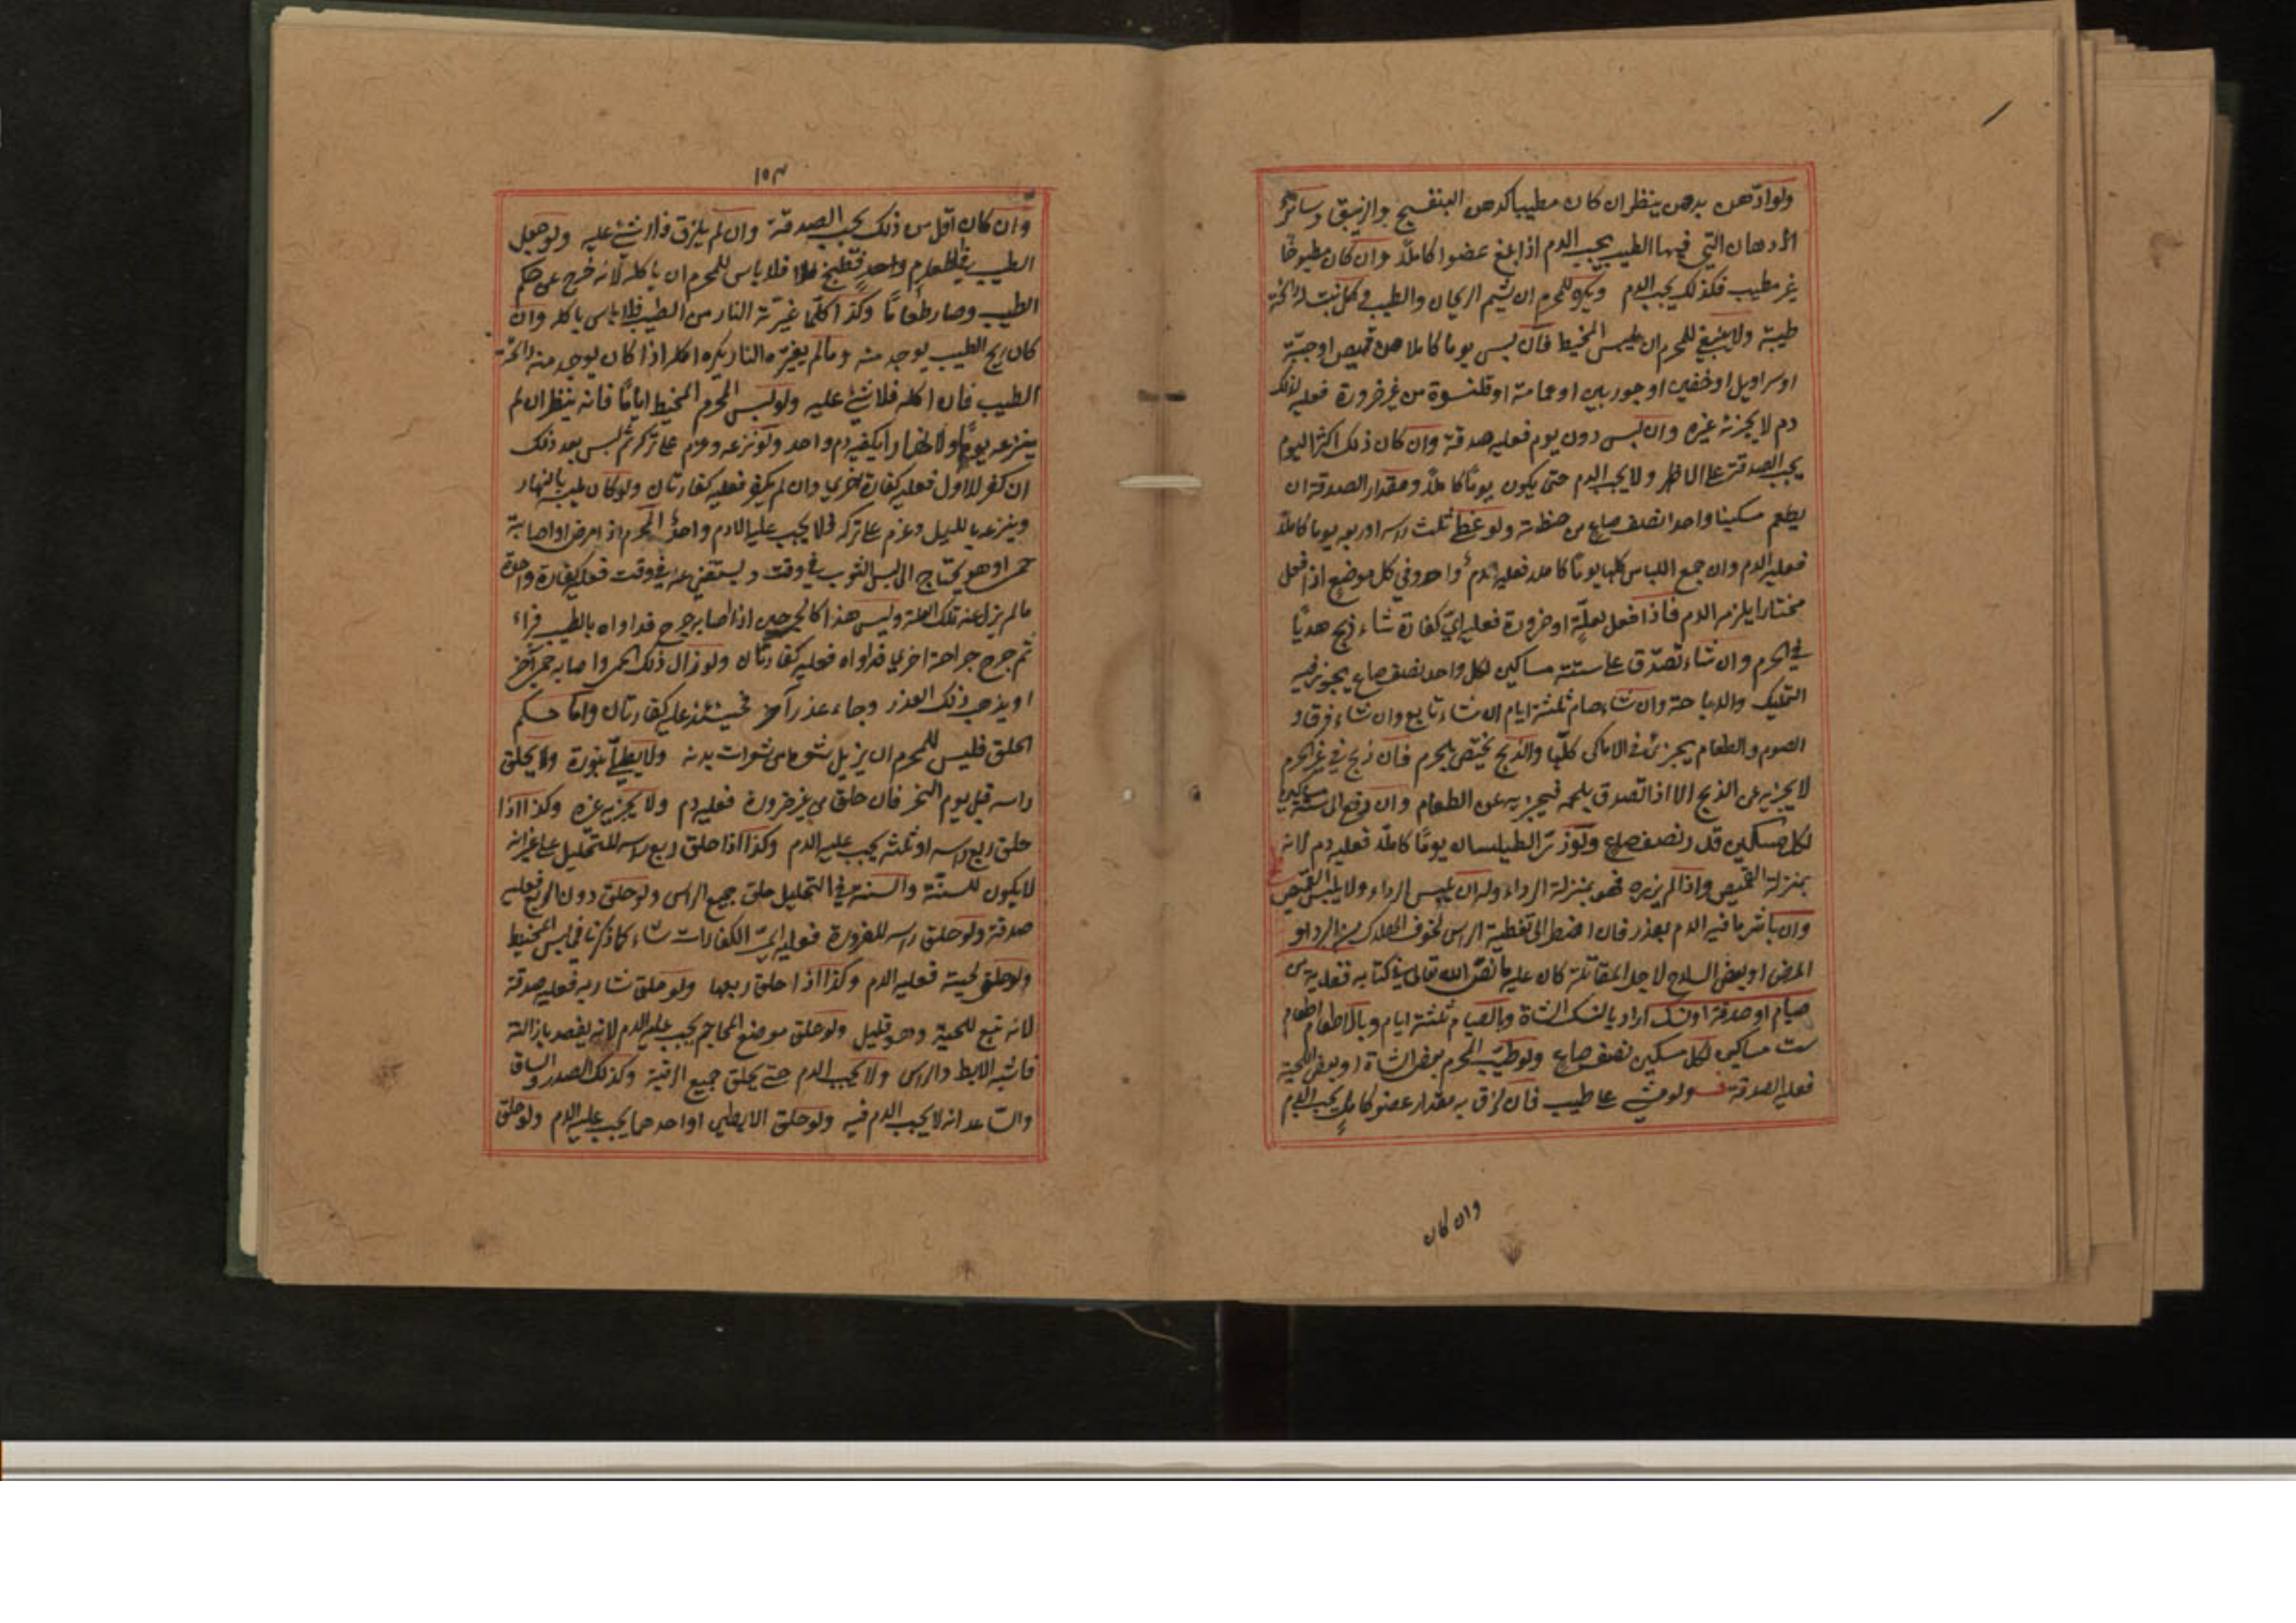 ولو ادّهن بدهن ينظر ان كان مطيبا كدهن البنفسج والزنبق وسائر
الادهان التي فيها الطيب يجب الدم اذا بلغ عضوا كاملًا وان كان مطبوخًا
غير مطيب فكذلك يجب الدم ويكره للمحرم ان يشم الريحان والطيب وكل نبت له رائحة
طيبة ولا ينبغي للمحرم ان يلبس المخيط فان لبس يوما كاملا من قميص او جبّة
او سراويل او خفين او جوربين او عمامة او قلنسوة من غير ضرورة فعليه لذلك
دم لا يجزئه غيره وان لبس دون يوم فعليه صدقة وان كان ذلك اكثر اليوم
يجب الصدقة ولا يجب الدم حتى يكون يومًا كاملًا ومقدار الصدقة ان
يطعم مسكينا واحدا نصف صاع من حنطة ولو غطى ثلث راسه او ربعه يوما كاملًا
فعليه الدم وان جمع اللباس كلها يومًا كاملا فعليه دم واحد وفي كل موضع اذا فعل
مختارا يلزمه الدم فاذا فعل لعلّة او ضرورة فعليه ايّ كفارة شاء ذبح هديًا
في الحرم وان شاء تصدّق على ستة مساكين لكل واحد نصف صاع يجوز فيه
التمليك والاباحة وان شاء صام ثلثة ايام ان شاء تابع وان شاء فرق و
الصوم والطعام يجزئ في الاماكن كلّها والذبح يختص بالحرم فان ذبح في غير الحرم
لا يجزيه عن الذبح الا اذا تصدق بلحمه فيجزيه عن الطعام وان دفع الى ستة مساكين
لكل مسكين قدر نصف صاع ولو زرّ الطيلسان يومًا كاملًا فعليه دم لانه
بمنزلة القميص واذا لم يزره فهو بمنزلة الرداء وله ان يلبس الرداء ولا يلبس القميص
وان باشر ما فيه الدم بعذر فان اضطر الى تغطية الراس لخوف الهلاك من البرد او
المرض او لبعض السلاح لاجل المقاتلة كان عليه ما نصّ الله تعالى في كتابه ففدية من
صيام او صدقة او نسك اراد بالنسك الشاة وبالصيام ثلثة ايام وبالاطعام اطعام
ست مساكين لكل مسكين نصف صاع ولو طيّب المحرم بعض الشارب او بعض اللحية
فعليه الصدقة ولو مشى على طيب فان لزق به مقدار عضو كامل يجب الدم
وان كان
١٥٣
وان كان اقل من ذلك يجب الصدقة وان لم يلزق فلا شئ عليه ولو جعل
الطيب في طعام قد طبخ فلا باس للمحرم ان ياكله لانه خرج عن حكم
الطيب وصار طعامًا وكذا كلّما غيّرته النار من الطيب فلا باس باكله وان
كان ريح الطيب يوجد منه وما لم يغيّره النار يكره اكله اذا كان يوجد منه رائحة
الطيب فان اكله فلا شئ عليه ولو لبس المحرم المخيط ايامًا فانه ينظر ان لم
ينزعه ليلًا ولا نهارا يكفيه دم واحد ولو نزعه وعزم على تركه ثم لبس بعد ذلك
ان كفر للاول فعليه كفارة اخرى وان لم يكفر فعليه كفارتان ولو كان يلبسه بالنهار
وينزعه بالليل وعزم على تركه فلا يجب عليه الا دم واحد المحرم اذا مرض او اصابه
حمى وهو يحتاج الى لبس الثوب في وقت ويستغني عنه في وقت فعليه كفارة واحدة
ما لم يزل عنه تلك العلة وليس هذا كالجرحين اذا اصابه جرح فداواه بالطيب فبراء
ثم جرح جراحة اخرى فداواه فعليه كفارتان ولو زال ذلك الحمى واصابه حمى آخر
او يذهب ذلك العذر وجاء عذر آخر فحينئذ عليه كفارتان واما حكم
الحلق فليس للمحرم ان يزيل شعره من شعرات بدنه ولا يطلي بنورة ولا يحلق
راسه قبل يوم النحر فان حلق من غير ضرورة فعليه دم ولا يجزيه غيره وكذا اذا
حلق ربع راسه او ثلثه يجب عليه الدم وكذا اذا حلق ربع راسه للتحليل على غير انه
لا يكون للسنّة والسنة في التحليل حلق جميع الراس ولو حلق دون الربع فعليه
صدقة ولو حلق راسه للضرورة فعليه ايّ الكفارات شاء كما ذكرنا في لبس المخيط
ولو حلق لحيته فعليه الدم وكذا اذا حلق ربعها ولو حلق شاربه فعليه صدقة
لانه تبع للحية وهو قليل ولو حلق موضع المحاجم يجب عليه الدم لانه يقصد بازالته
فاشبه الابط والراس ولا يجب الدم حتى يحلق جميع الرقبة وكذلك الصدر والساق
والساعد انه لا يجب الدم فيه ولو حلق الابطين او احدهما يجب عليه الدم ولو حلق